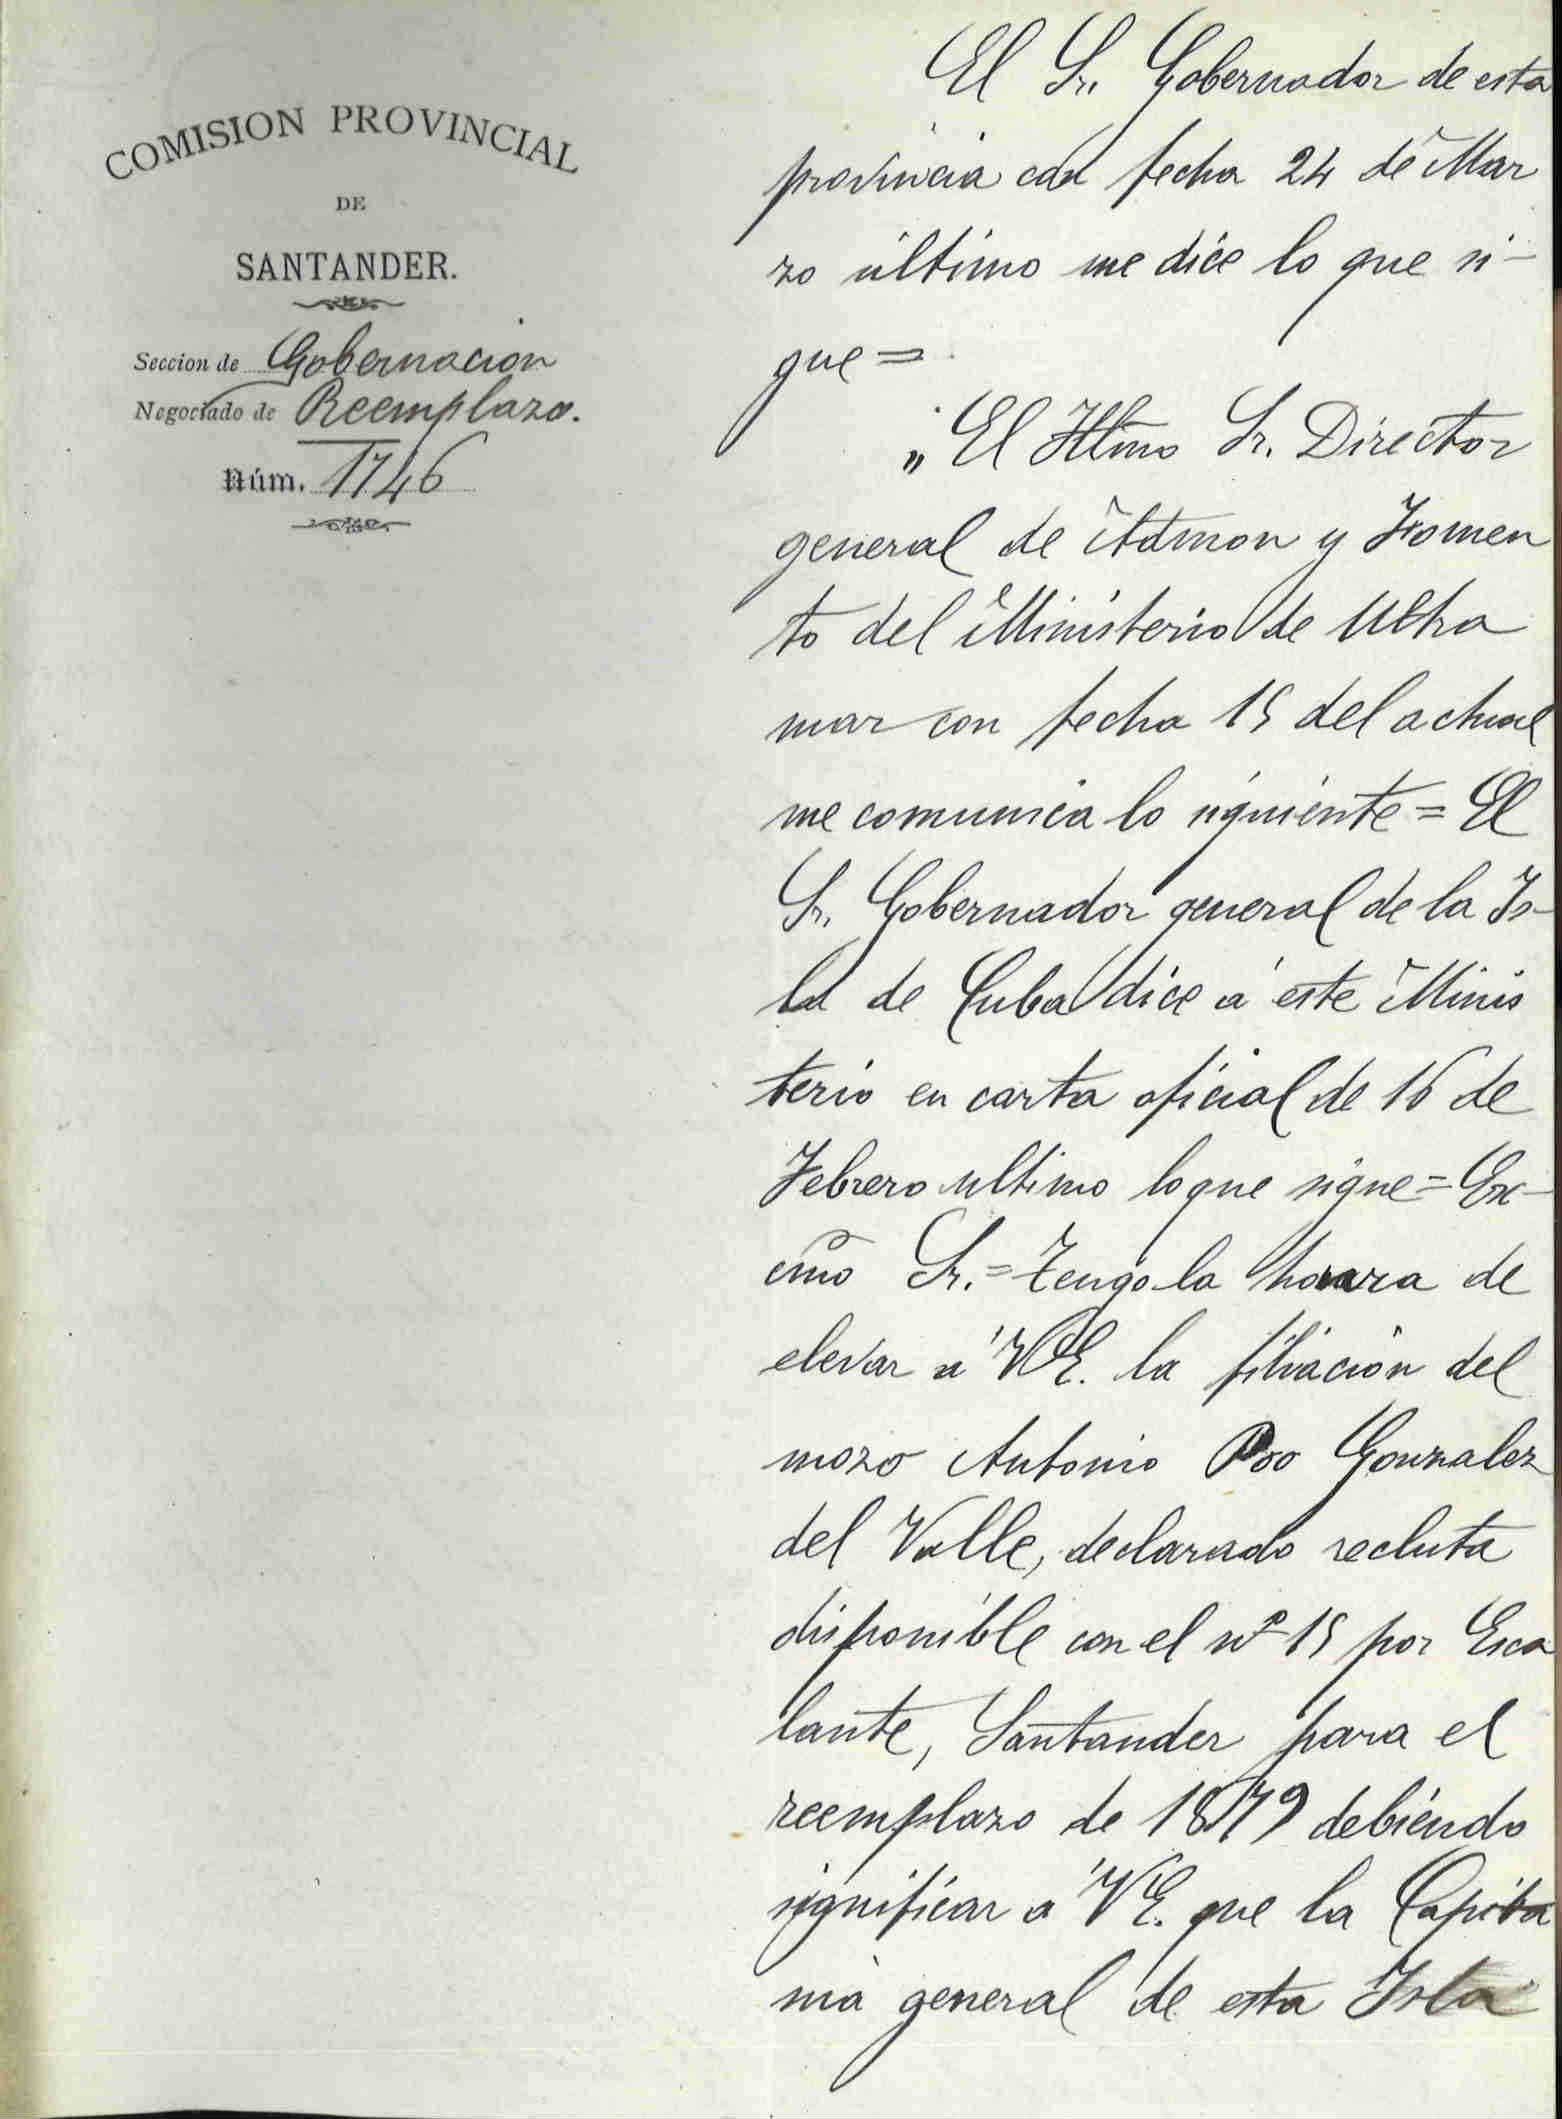 COMISION PROVINCIAL
DE
SANTANDER.
Seccion de Gobernacion
Negociado de Reemplazo.
Núm. 1746
El Sr. Gobernador de esta
provincia con fecha 24 de Mar
zo último me dice lo que si-
gue =
" El Iltmo Sr. Director
general de Admon y Fomen
to del Ministerio de Ultra
mar con fecha 15 del actual
me comunica lo siguiente = El
Sr. Gobernador general de la Is-
la de Cuba dice á este Minis
terio en carta oficial de 16 de
Febrero ultimo lo que sigue = Ex-
cmo Sr. = Tengo la honra de
elevar á V.E. la filiación del
mozo Antonio Poo Gonzalez
del Valle, declarado recluta
disponible con el nº 15 por Esca
lante, Santander para el
reemplazo de 1879 debiendo
significar á V.E. que la Capita
nia general de esta Isla